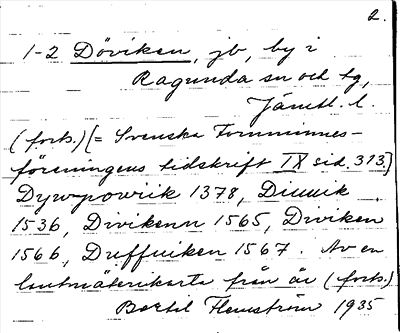 2.
1-2 Döviken, jb, by i
Ragunda sn och tg,
Jämtl. l.
(forts.) [= Svenska Fornminnes-
föreningens tidskrift IX sid 313.]
Dywpowiik 1378, Diuuik
1536, Divikenn 1565, Dviken
1566, Duffuiken 1567. Av en
lantmäterikarta från år (forts.)
Bertil Flemström 1935